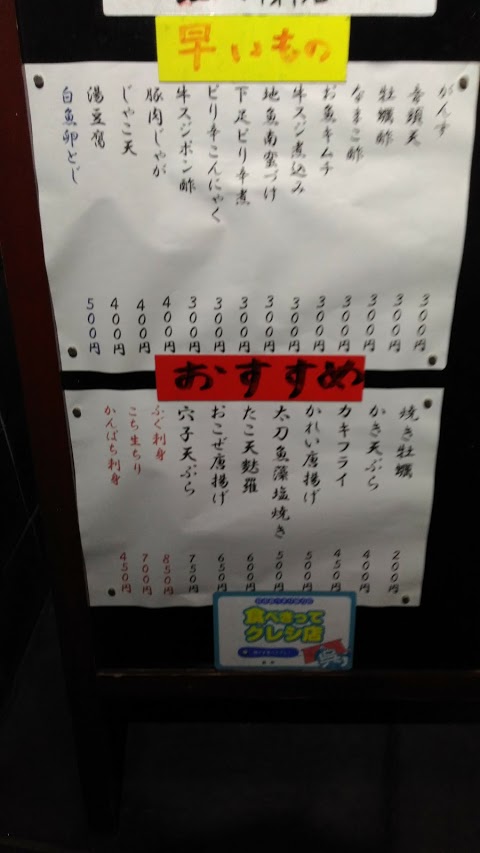 早いもの
がんす 300円
音頭天 300円
牡蠣酢 300円
なまこ酢 300円
お魚キムチ 300円
牛スジ煮込み 300円
地魚南蛮づけ 300円
下足ピリ辛煮 300円
ピリ辛こんにゃく 300円
牛スジポン酢 300円
豚肉じゃが 400円
じゃこ天 400円
湯豆腐 400円
白魚卵とじ 500円
おすすめ
焼き牡蠣 200円
かき天ぷら 400円
カキフライ 450円
かれい唐揚げ 500円
太刀魚藻塩焼き 500円
たこ天麩羅 600円
おこぜ唐揚げ 650円
穴子天ぷら 750円
ふぐ刺身 850円
こち生ちり 700円
かんぱち刺身 450円
食べきって
クレシ店
呉